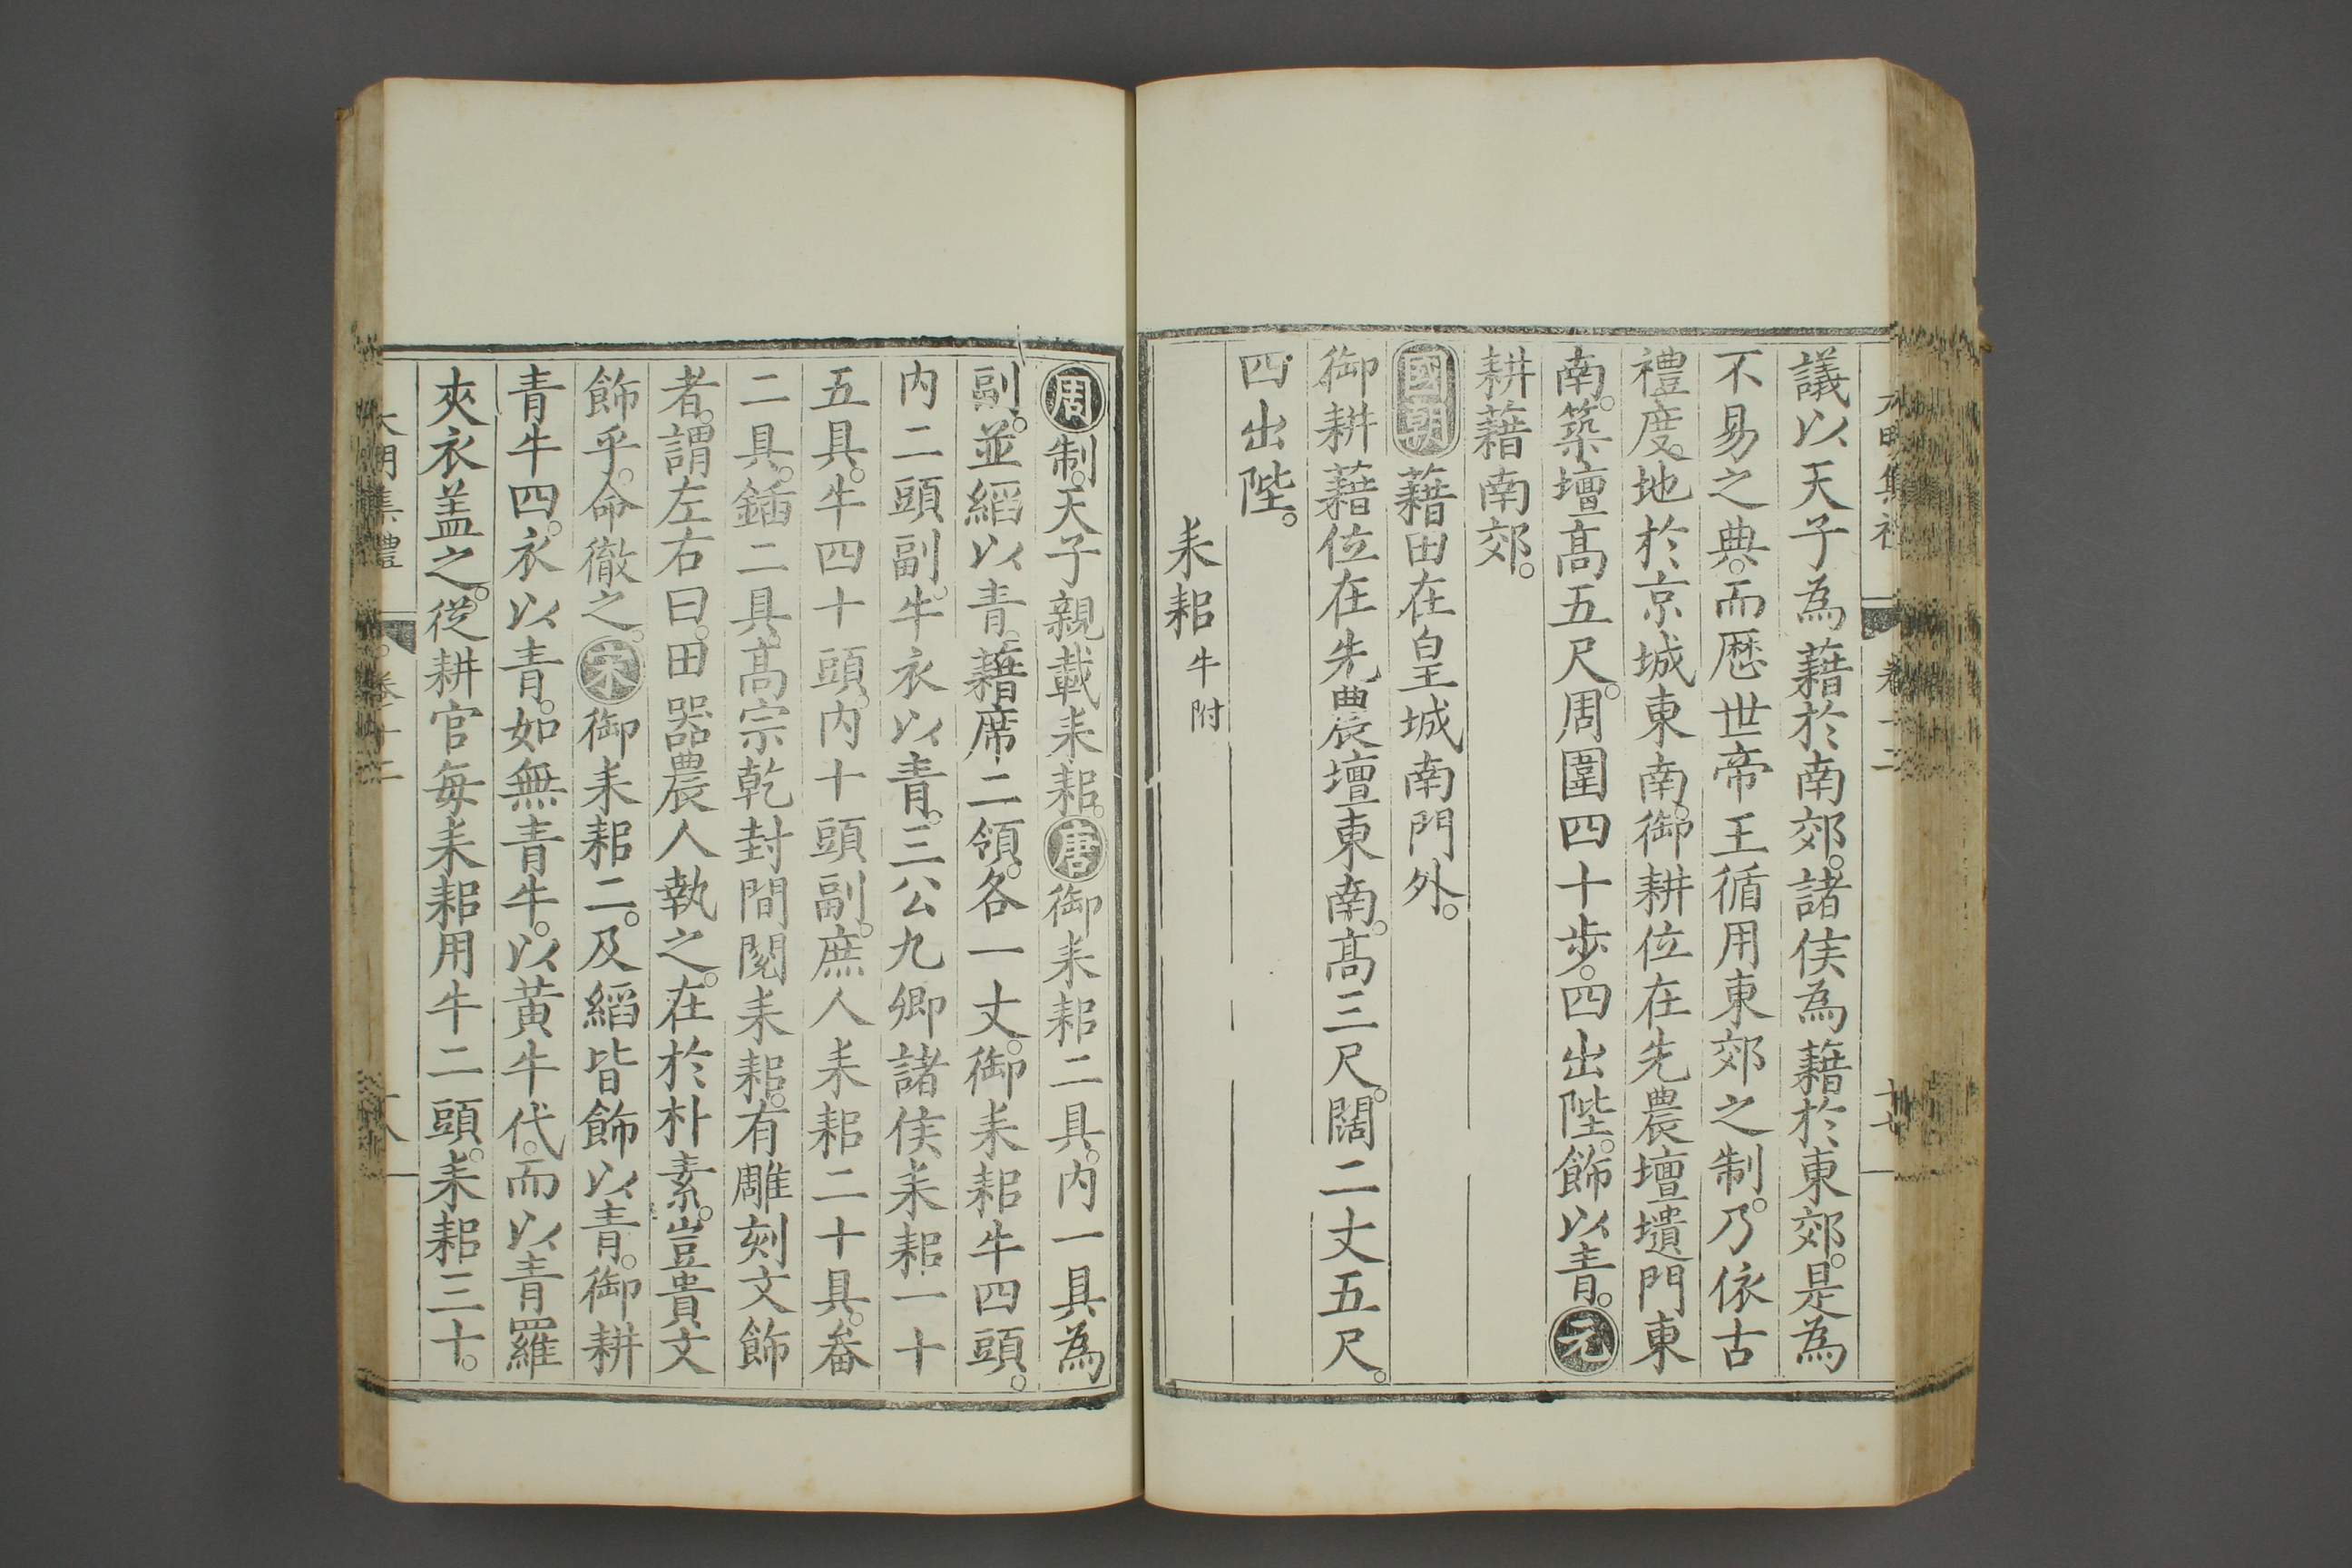 議以天子為藉於南郊。諸侯為藉於東郊。是為
不易之典。而歷世帝王循用東郊之制。乃依古
禮度。地於京城東南。御耕位在先農壇壝門東
南。築壇高五尺。周圍四十步。四出陛。飾以青。元
耕藉南郊。
國朝藉田在皇城南門外。
御耕藉位在先農壇東南。高三尺。闊二丈五尺。
四出陛。
耒耜牛附
周制。天子親載耒耜。唐御耒耜二具。內一具為
副。並縚以青。藉席二領。各一丈。御耒耜牛四頭。
內二頭副。牛衣以青。三公九卿諸侯耒耜一十
五具。牛四十頭。內十頭副。庶人耒耜二十具。畚
二具。鍤二具。高宗乾封間閱耒耜。有雕刻文飾
者。謂左右曰。田器農人執之。在於朴素。豈貴文
飾乎。命徹之。宋御耒耜二。及縚皆飾以青。御耕
青牛四。衣以青。如無青牛。以黃牛代。而以青羅
夾衣盖之。從耕官每耒耜用牛二頭。耒耜三十。
大明集禮 卷十二